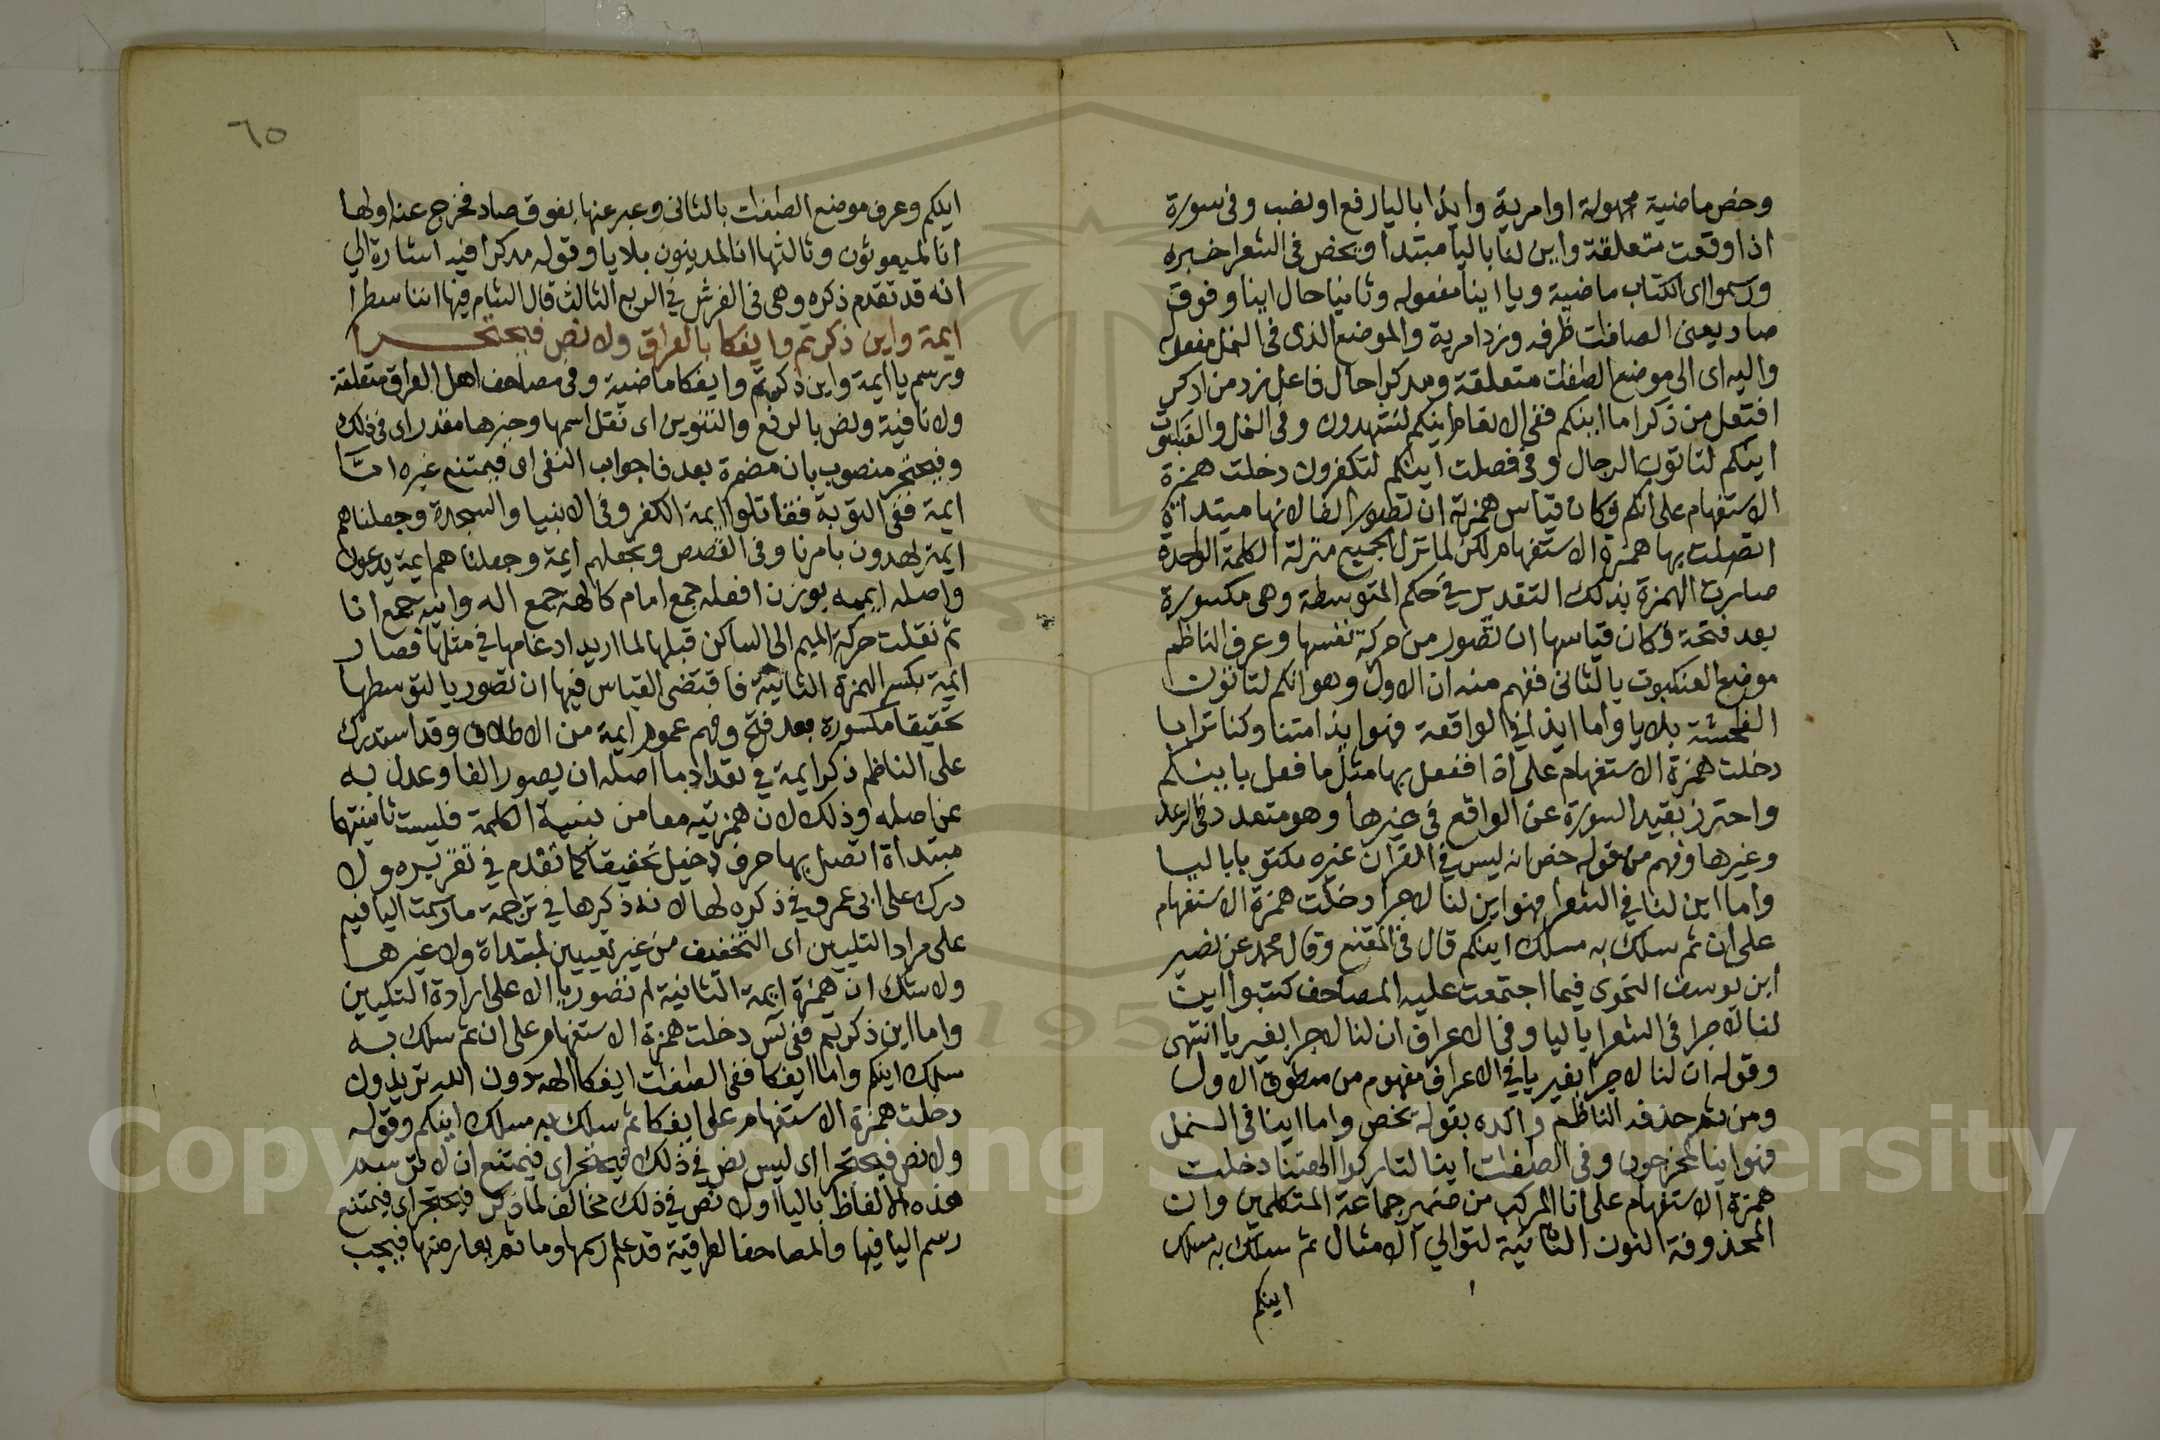 وخص ماضية مجهولة او امرية وأيذا باليا رفع او نصب وفى سورة
اذا وقعت متعلقة واين لنا باليا مبتدا ويخص فى الشعرا خبره
ورسموا اى الكتاب ماضية ويا اينا مفعوله وثانيا حال اينا وفوق
صاد يعنى الصافات ظرفه وزد امرية والموضع الذى فى النمل مفعوله
واليه اى الى موضع الصفت متعلقة ومدكرا حال فاعل زد من ادكر
افتعل من ذكر اما اينكم ففى الانعام اينكم لتشهدون وفى النمل والعنكبوت
اينكم لتاتون الرجال وفى فصلت اينكم لتكفرون دخلت همزة
الاستفهام على انكم وكان قياس همزته ان تصور الفا لانها مبتدأة
اتصلت بها همزة الاستفهام لكن لما تزل الجميع منزلة الكلمة الواحدة
صارت الهمزة بذلك التقدير فى حكم المتوسطة وهى مكسورة
بعد فتحة فكان قياسها ان تصور من حركة نفسها وعرف الناظم
موضع العنكبوت بالثانى ففهم منه ان الاول وهو انكم لتاتون
الفحشة بلا يا واما ايذا فى الواقعة فهو ايذا متنا وكنا ترابا
دخلت همزة الاستفهام على اذا ففعل بها مثل ما فعل باينكم
واحترز بقيد السورة عن الواقع فى غيرها وهو متعدد فى الرعد
وغيرها وفهم من قوله خص انه ليس فى القرآن غيره مكتوبا باليا
واما اين لنا فى الشعرا فهو اين لنا لاجرا دخلت همزة الاستفهام
على ان ثم سلك به مسلك اينكم قال فى المقنع وقال محمد عن نصير
ابن يوسف النحوى فيما اجتمعت عليه المصاحف كتبوا اين
لنا لاجرا فى الشعرا باليا وفى الاعراف ان لنا لاجرا بغير يا انتهى
وقوله ان لنا لاجرا بغير يا فى الاعراف مفهوم من منطوق الاول
ومن ثم حذفه الناظم واكده بقوله يخص واما اينا فى النمل
فهو اينا لمخرجون وفى الصفت اينا لتاركوا الهتنا دخلت
همزة الاستفهام على انا المركب من ضمير جماعة المتكلمين وان
المحذوفة النون الثانية لتوالى الامثال ثم سلك به مسلك
اينكم
٦٥
اينكم وعرف موضع الصفت بالثانى وعبر عنها بفوق صاد فخرج عنه اولها
انا لمبعوثون وثالثها انا لمدينون بلا يا وقوله مدكرا فيه اشارة الى
انه قد تقدم ذكره وهى فى الفرش فى الربع الثالث قال الشام فيها اننا سطرا
ايمة واين ذكرتم وايفكا بالعراق ولا نص فيحتجرا
ورسم يا ايمة واين ذكرتم وايفكا ماضية وفى مصاحف اهل العراق متعلقة
ولا نافية ونص بالرفع والتنوين اى نقل اسمها وخبرها مقدر اى فى ذلك
وفيحتجر منصوب بان مضمرة بعد فا جواب النفى اى فيمتنع غيره امّا
ايمة ففى التوبة فقاتلوا ايمة الكفر وفى الانبيا والسجدة وجعلناهم
ايمة يهدون بامرنا وفى القصص ونجعلهم ايمة وجعلناهم ايمة يدعون
واصله ايممه بوزن افعله جمع امام كالهة جمع اله وانية جمع انا
ثم نقلت حركة الميم الى الساكن قبلها لما اريد ادغامها فى مثلها فصار
ايمة بكسر الهمزة الثانية فاقتضى القياس فيها ان تصور يا لتوسطها
تحقيقا مكسورة بعد فتح وفهم عموم ايمة من الاطلاق وقد استدرك
على الناظم ذكر ايمة فى تعداد ما اصله ان يصور الفا وعدل به
عن اصله وذلك لان همزتيه معا من بنية الكلمة فليست ثانيتهما
مبتدأة اتصل بها حرف دخيل تحقيقا كما تقدم فى تقريره ولا
درك على ابى عمرو فى ذكره لها لانه ذكرها فى ترجمة ما رسمت اليا فيه
على مراد التليين اى التخفيف من غير تعيين لمبتداة ولا غيرها
ولا شك ان همزة ايمة الثانية لم تصور يا الا على ارادة التليين
واما اين ذكرتم ففى يس دخلت همزة الاستفهام على ان ثم سلك به
مسلك اينكم واما ايفكا ففى الصفت ايفكا الهة دون الله تريدون
دخلت همزة الاستفهام على ايفكا ثم سلك به مسلك اينكم وقوله
ولا نص فيحتجرا اى ليس نص فى ذلك فيحتجر اى فيمتنع ان لا ترسم
هذه الالفاظ باليا او لا نص فى ذلك مخالف لما ذكر فيحتجر اى فيمتنع
رسم اليا فيها والمصاحف العراقية قد علم رسمها وما ثم يعارضها فيجب
Copyright © King Saud University
195